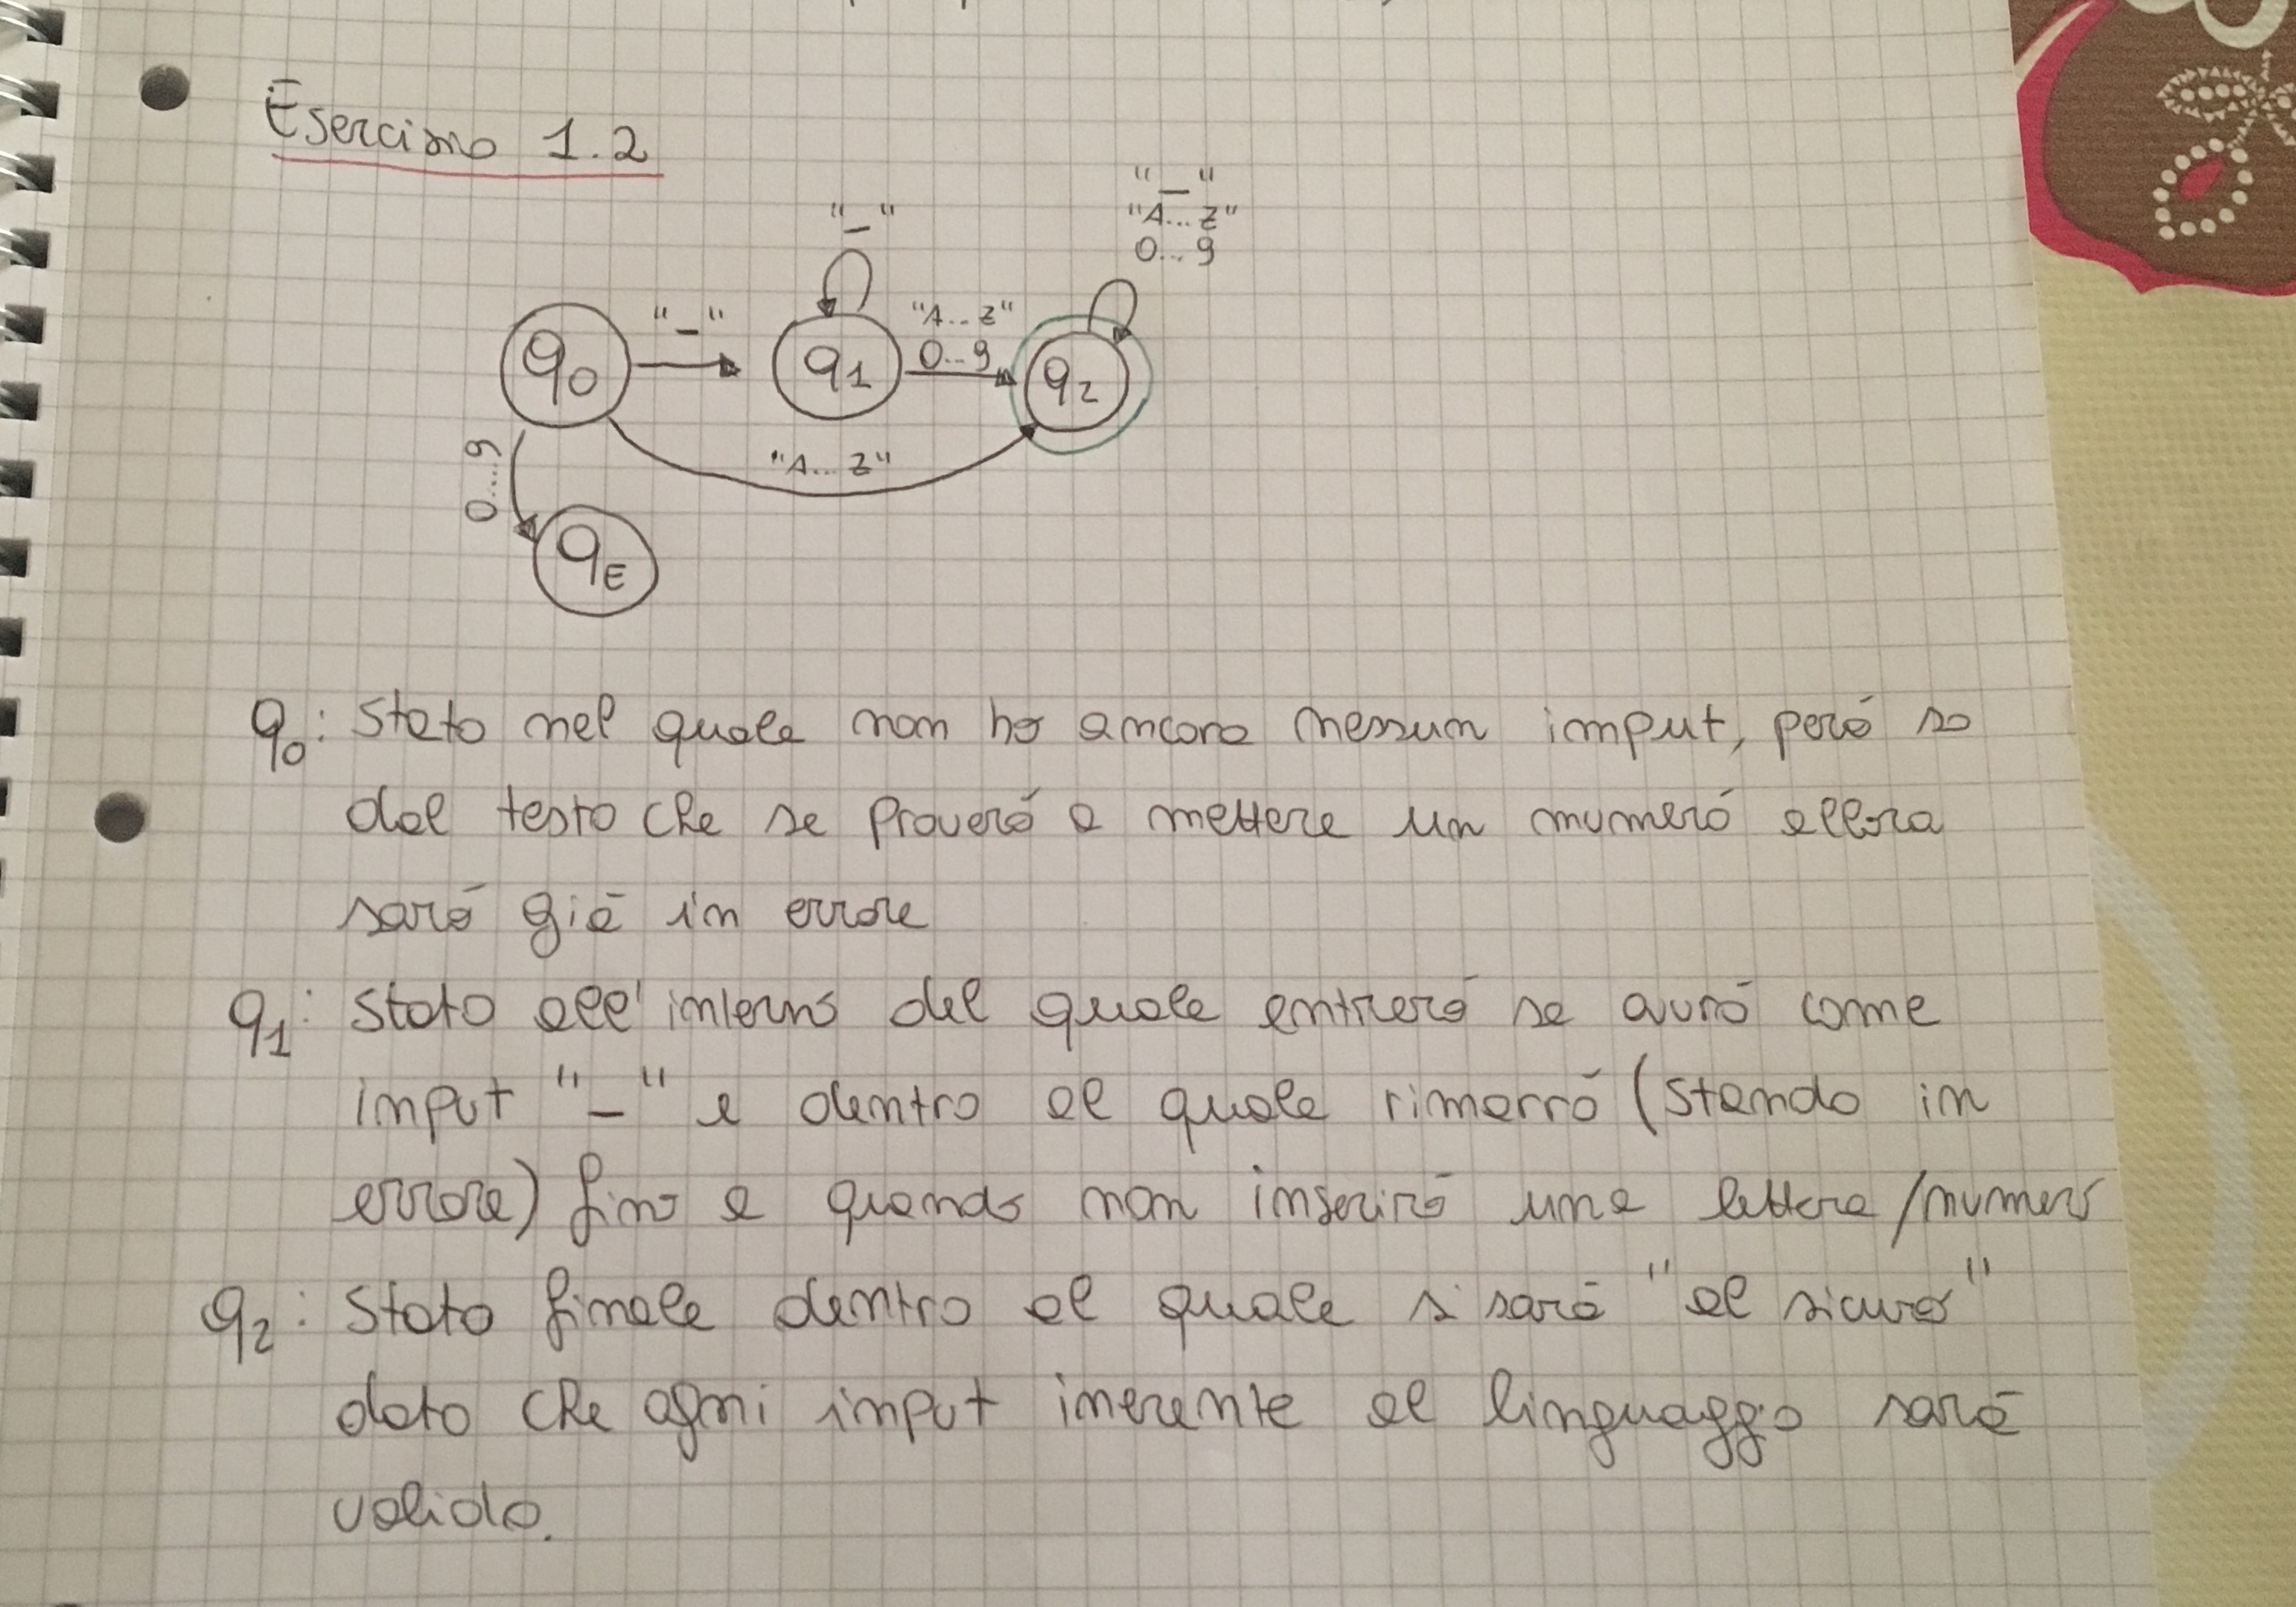 Esercizio 1.2
"_"
"A...Z"
0...9
"_"
"_"
"A...Z"
0...9
q0
q1
q2
"A...Z"
0....9
qE
q0: Stato nel quale non ho ancora nessun imput, peró so
dal testo che se proveró a mettere un numeró allora
saró giá in errore
q1: Stato all'interno del quale entreró se avró come
input "_" e dentro al quale rimarró (stando in
errore) fino a quando non inseriró una lettera/numero
q2: Stato finale dentro al quale si sará "al sicuro"
dato che ogni input inerente al linguaggio sará
valido.